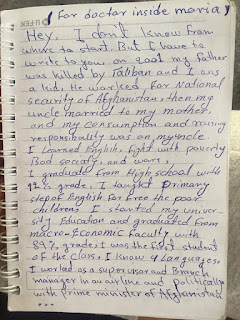 (For doctor inside moria)
Hey, I don't know from
where to start. But I have to
write to you, on 2001 my father
was killed by Taliban and I was
a kid, He worked for National
security of Afghanistan, then my
uncle married to my mother,
and my consumption and raising
responsibility was on my uncle
I learned English, fight with poverty
Bad society, and wars,
I graduate from High school with
92% grade, I taught primary
step of English for free the poor
childrens I started my univer-
sity Education and graduated from
macro-Economic faculty with
87% grade, I was the first student
of the class, I know 4 Languages,
I worked as a supervisor and Branch
manager in an airline and politically
with prime minister of Afghanistan
...